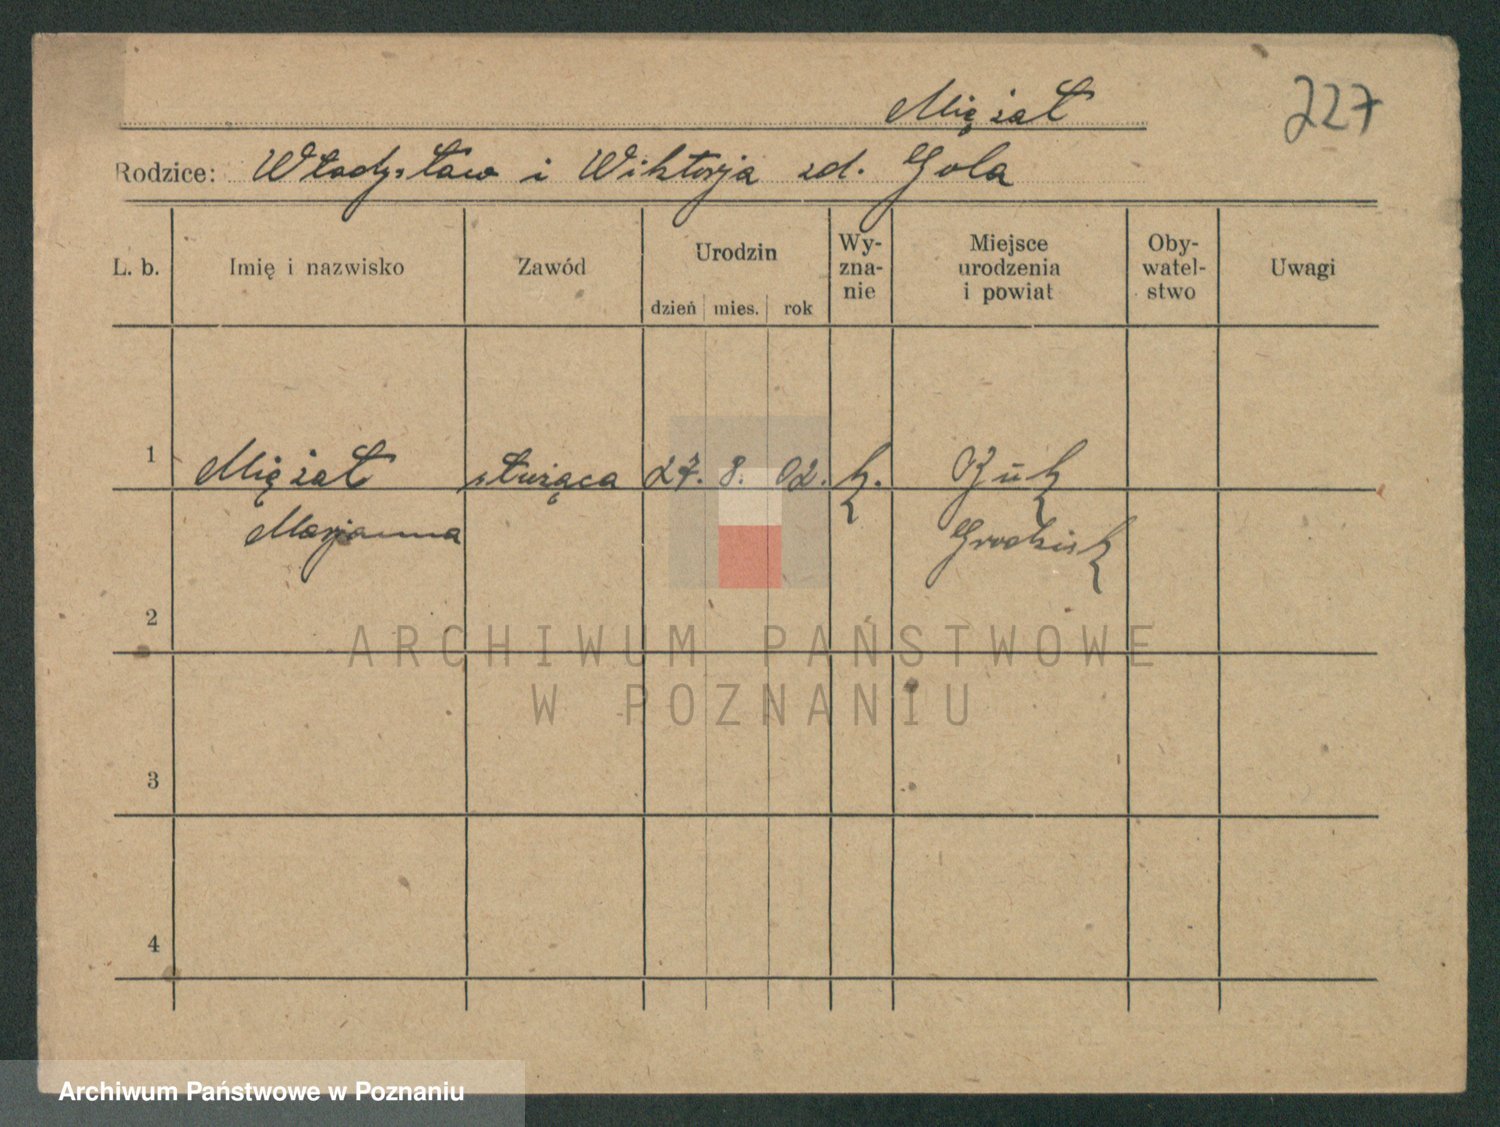 Miężał
227
Rodzice: Władysław i Wiktorja zd. Gola
L. b.
Imię i nazwisko
Zawód
Urodzin
dzień mies. rok
Wy-
zna-
nie
Miejsce
urodzenia
i powiat
Oby-
watel-
stwo
Uwagi
1 Miężał służąca 27. 8. 02. k. Buk
Marjanna Grodzisk
2
ARCHIWUM PAŃSTWOWE
W POZNANIU
3
4
Archiwum Państwowe w Poznaniu